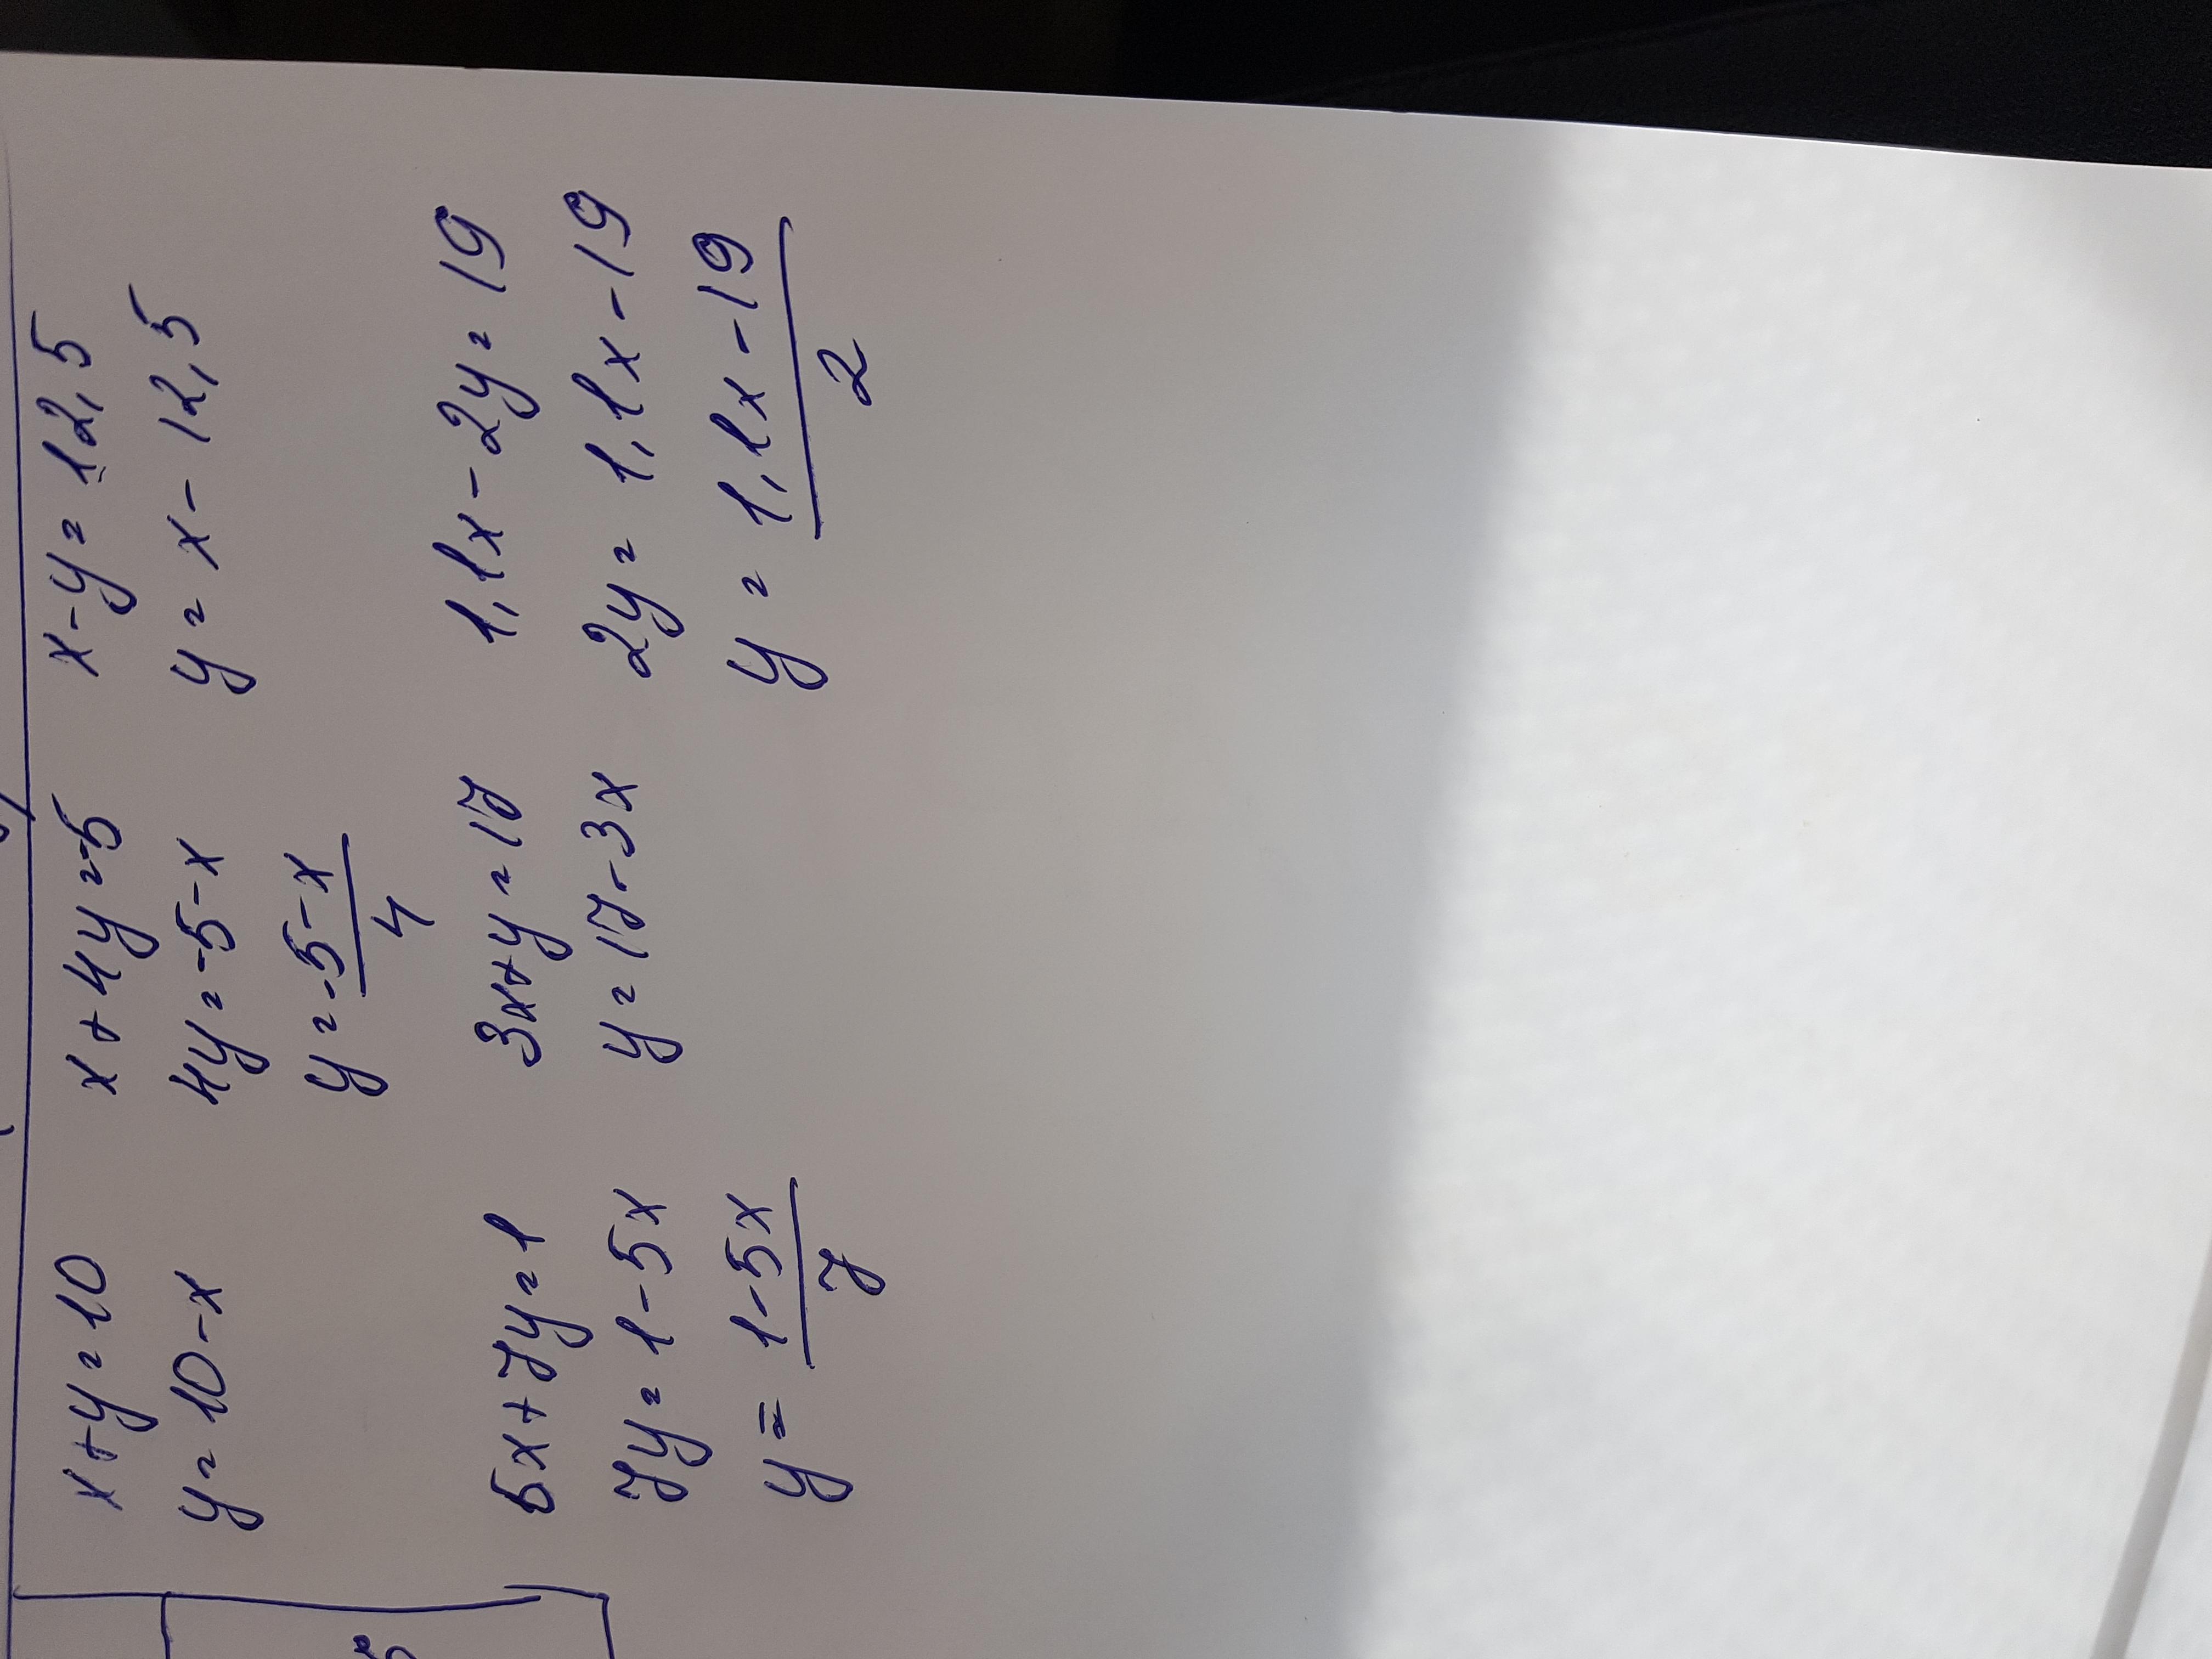 x+y=10
y=10-x
x+4y=-5
4y=-5-x
y=-5-x
4
x-y=12,5
y=x-12,5
5x+7y=1
7y=1-5x
y=1-5x
7
3x+y=17
y=17-3x
1,1x-2y=19
2y=1,1x-19
y=1,1x-19
2